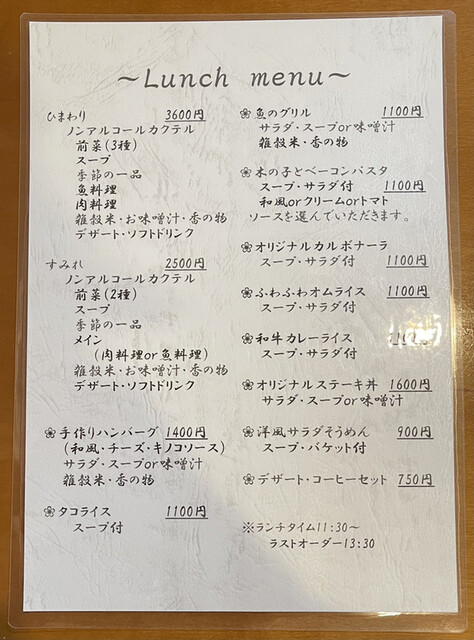 ～Lunch menu～
ひまわり 3600円
ノンアルコールカクテル
前菜(3種)
スープ
季節の一品
魚料理
肉料理
雑穀米・お味噌汁・香の物
デザート・ソフトドリンク
すみれ 2500円
ノンアルコールカクテル
前菜(2種)
スープ
季節の一品
メイン
(肉料理or魚料理)
雑穀米・お味噌汁・香の物
デザート・ソフトドリンク
❀手作りハンバーグ 1400円
(和風・チーズ・キノコソース)
サラダ・スープor味噌汁
雑穀米・香の物
❀タコライス 1100円
スープ付
❀魚のグリル 1100円
サラダ・スープor味噌汁
雑穀米・香の物
❀木の子とベーコンパスタ
スープ・サラダ付 1100円
和風orクリームorトマト
ソースを選んでいただきます。
❀オリジナルカルボナーラ
スープ・サラダ付 1100円
❀ふわふわオムライス 1100円
スープ・サラダ付
❀和牛カレーライス
スープ・サラダ付
❀オリジナルステーキ丼 1600円
サラダ・スープor味噌汁
❀洋風サラダそうめん 900円
スープ・バケット付
❀デザート・コーヒーセット 750円
※ランチタイム11:30～
ラストオーダー13:30